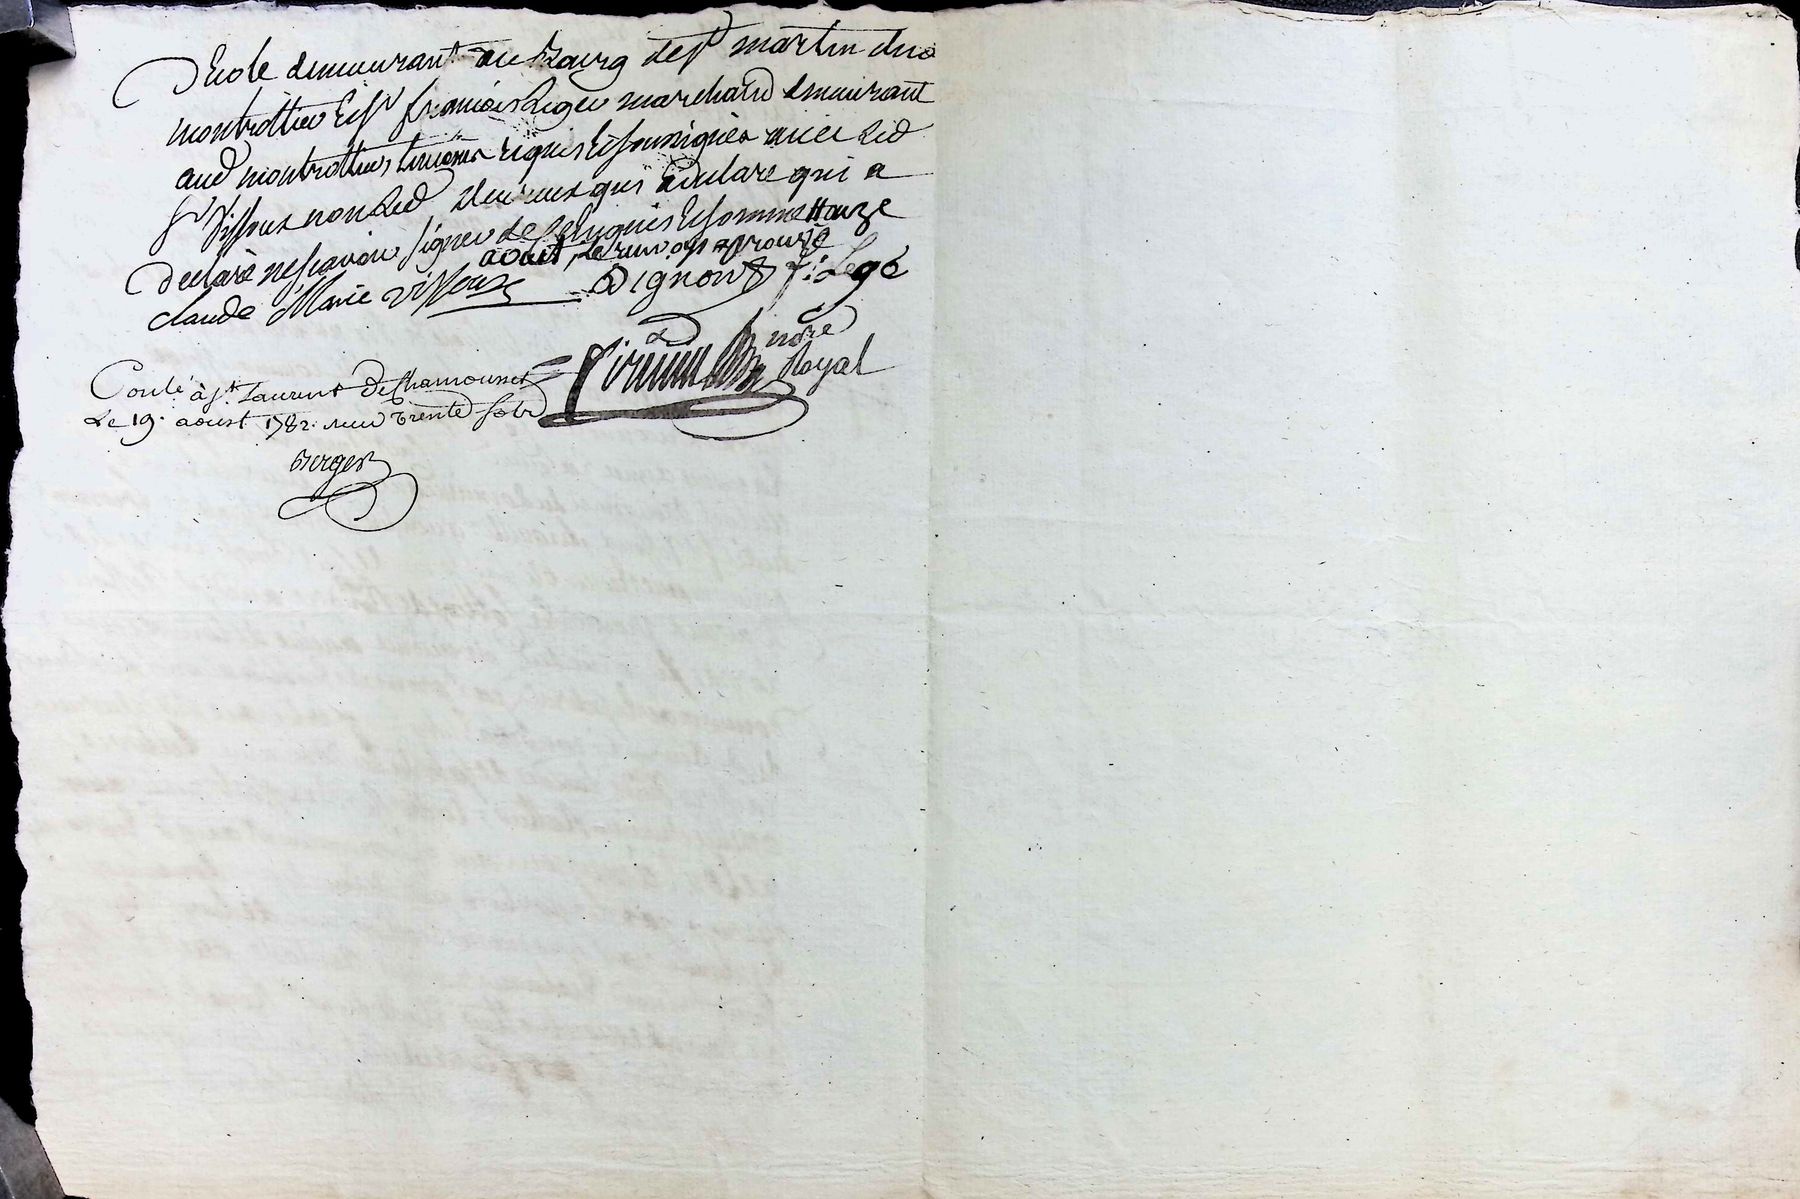 Decole demeurant au Bourg de st martin du
montrottier Et sr françois Leger marchand demeurant
aud montrottier temoins requis Et soussignés avec Led
sr Vissoux non Led qui a
Declaré ne scavoir signer de ce Enquis Et sommé Houze
aout, le renvoy aprouvé
claude Marie Vissoux Dignon f: Legé
nore
Royal
Conlé à st Laurent De Chamousset
Le 19. aoust 1782. reçu trente sols
Berger